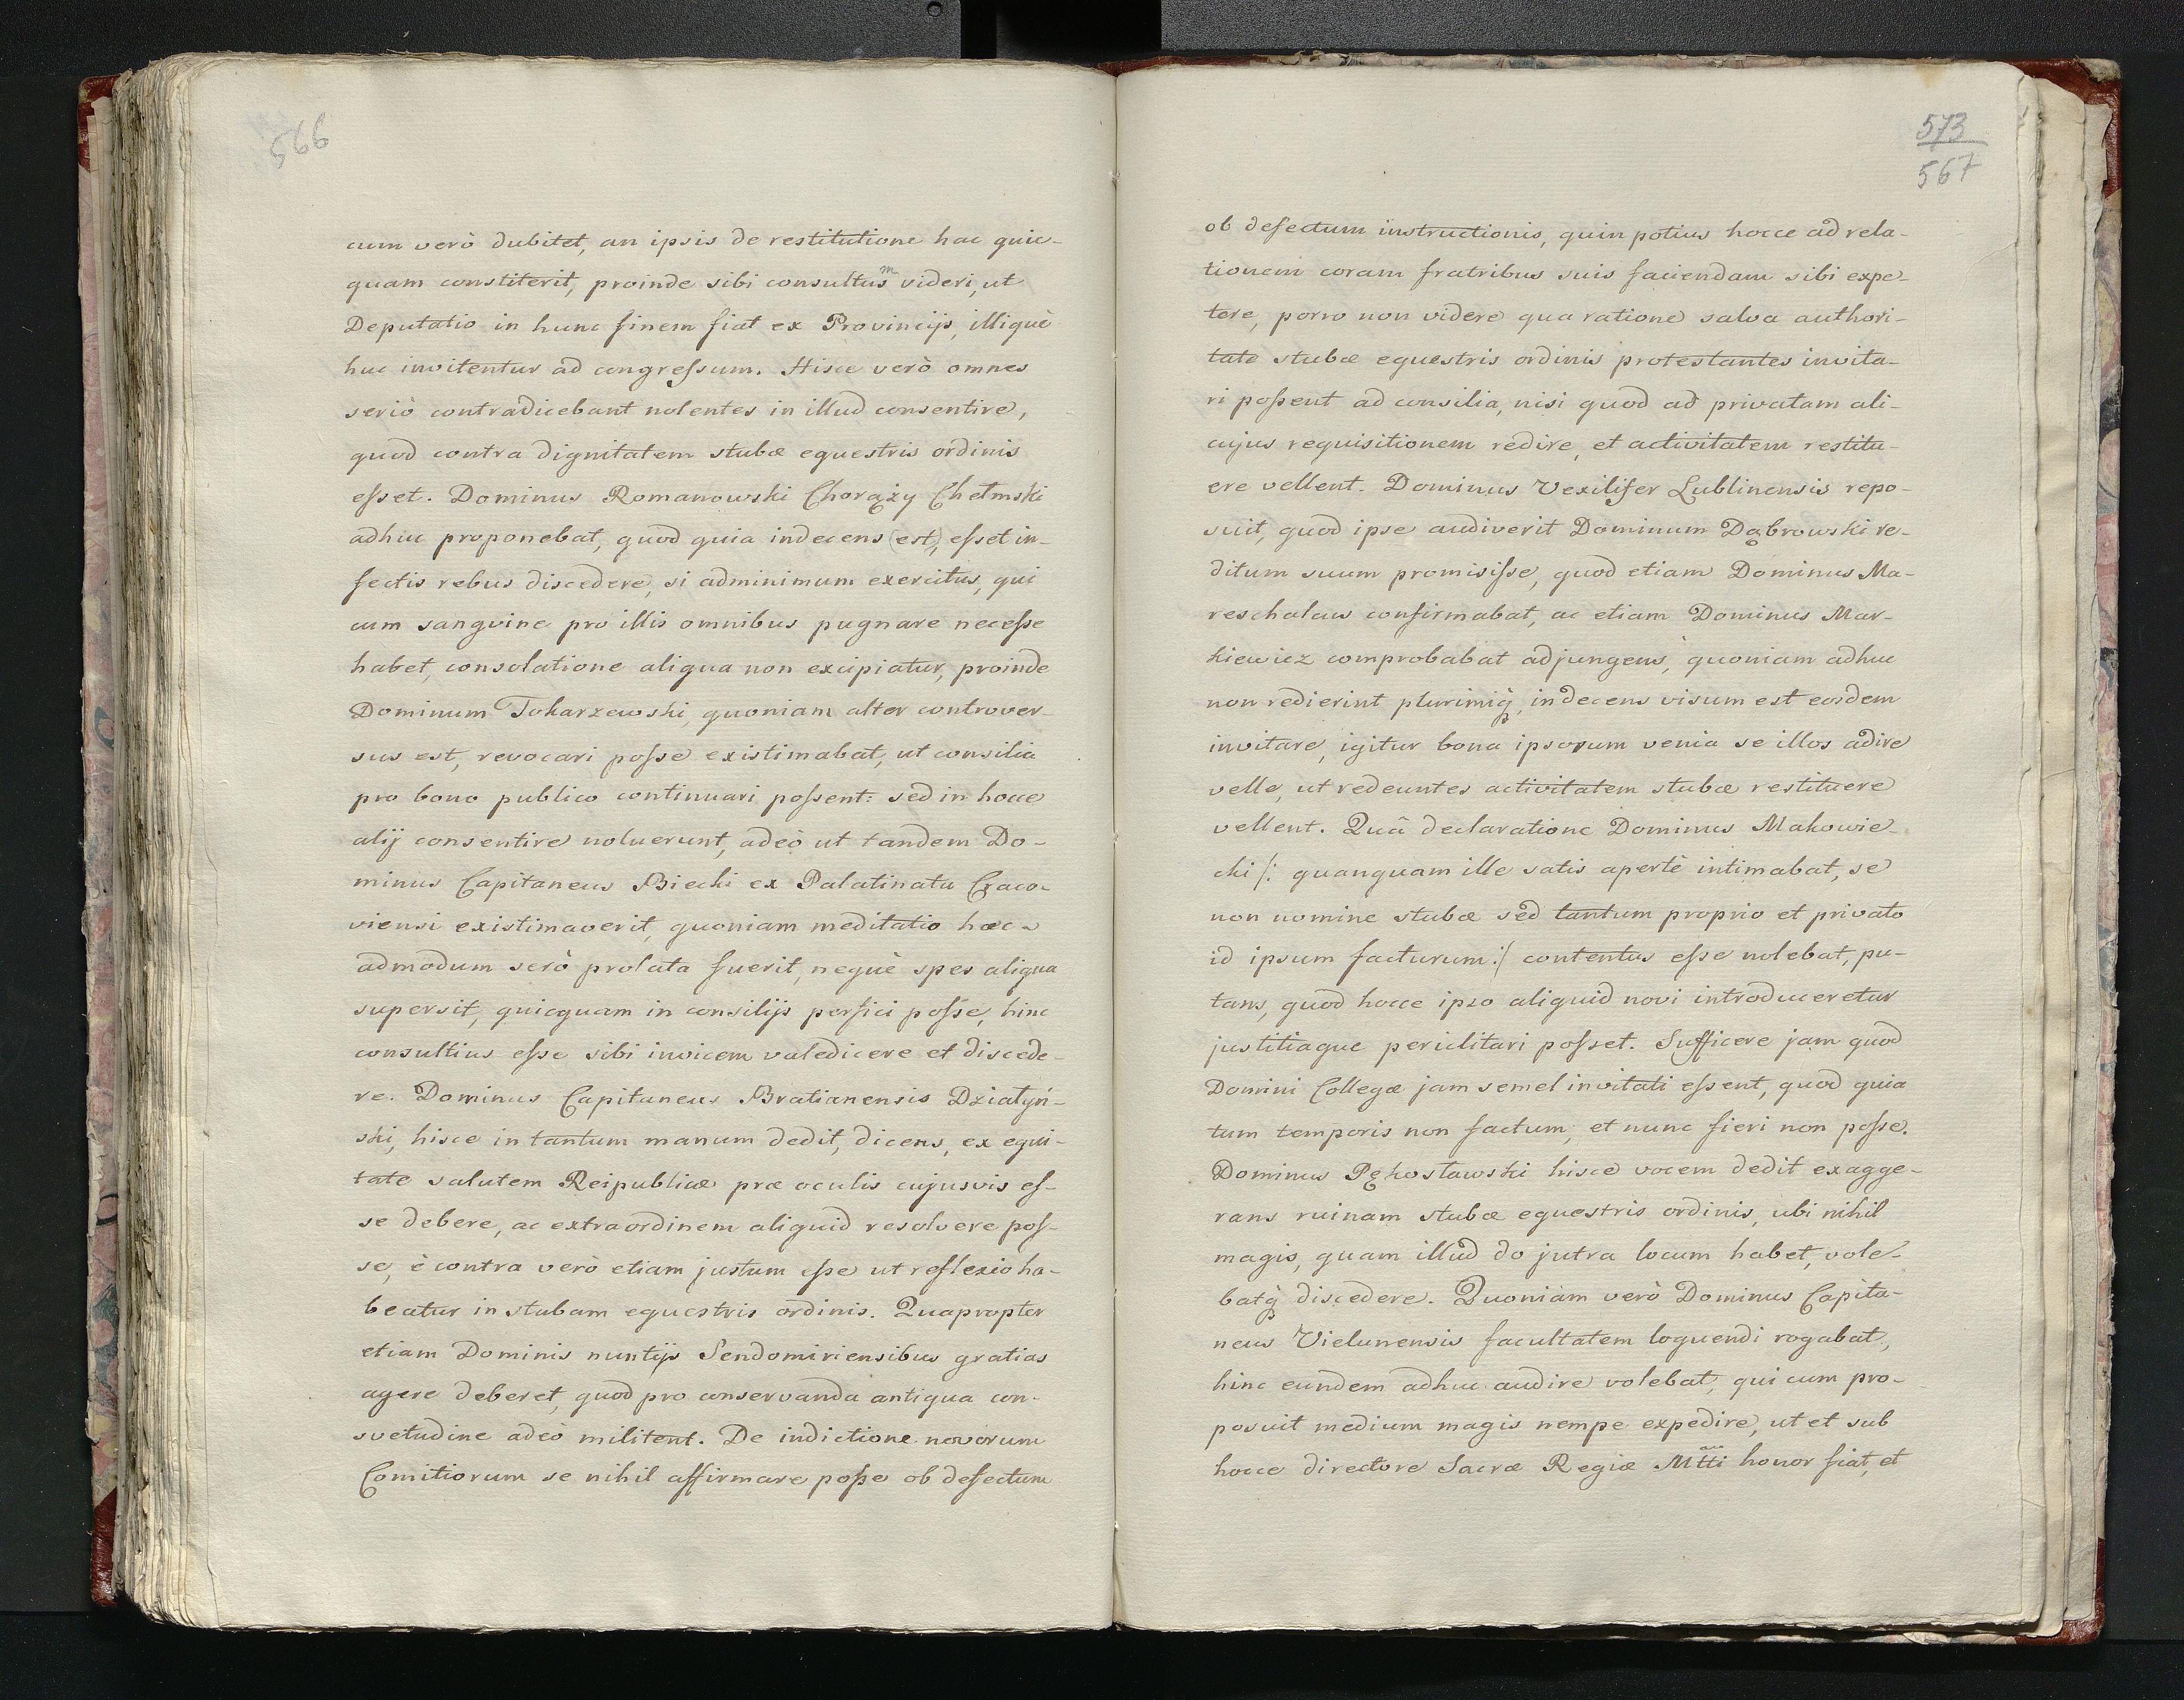 566
cum verò dubitet, an ipsis de restitutione hac quic-
quam constiterit, proinde sibi consultus m videri, ut
Deputatio in hunc finem fiat ex Provincijs, illiquè
huc invitentur ad congressum. Hisce verò omnes
seriò contradicebant nolentes in illud consentire,
quod contra dignitatem stubæ equestris ordinis
esset. Dominus Romanowski Chorąży Chełmski
adhuc proponebat, quod quia indecens (est), esset in-
fectis rebus discedere, si adminimum exercitus, qui
cum sangvine pro illis omnibus pugnare necesse
habet, consolatione aliqua non excipiatur, proinde
Dominum Tokarzewski, quoniam alter controver-
sus est, revocari posse existimabat, ut consilia
pro bono publico continuari possent: sed in hocce
alij consentire noluerunt, adeò ut tandem Do-
minus Capitaneus Biecki ex Palatinatu Craco-
viensi existimaverit, quoniam meditatio hæc
admodum serò prolata fuerit, nequè spes aliqua
supersit, quicquam in consilijs perfici posse, hinc
consultius esse sibi invicem valedicere et discede-
re. Dominus Capitaneus Bratianensis Działyń-
ski, hisce in tantum manum dedit, dicens, ex equi-
tate salutem Reipublicæ præ oculis cujusvis es-
se debere, ac extraordinem aliquid resolvere pos-
se, è contra verò etiam justum esse ut reflexio ha-
beatur in stubam equestris ordinis. Quapropter
etiam Dominis nuntijs Sendomiriensibus gratias
agere deberet, quod pro conservanda antiqua con-
svetudine adeò militent. De indictione novorum
Comitiorum se nihil affirmare posse ob defectum
573
567
ob defectum instructionis, quin potius hocce ad rela-
tionem coram fratribus suis faciendam sibi expe-
tere, porro non videre qua ratione salva authori-
tate stubæ equestris ordinis protestantes invita-
ri possent ad consilia, nisi quod ad privatam ali-
cujus requisitionem redire, et activitatem restitu-
ere vellent. Dominus Vexilifer Lublinensis repo-
suit, quod ipse audiverit Dominum Dąbrowski re-
ditum suum promisisse, quod etiam Dominus Ma-
reschalcus confirmabat, ac etiam Dominus Mar-
kiewicz comprobabat adjungens, quoniam adhuc
non redierint plurimiq, indecens visum est eosdem
invitare, igitur bona ipsorum venia se illos adire
velle, ut redeuntes activitatem stubæ restituere
vellent. Quâ declaratione Dominus Makowie-
cki /: quanquam ille satis apertè intimabat, se
non nomine stubæ sed tantum proprio et privato
id ipsum facturum :/ contentus esse nolebat, pu-
tans, quod hocce ipso aliquid novi introduceretur
justitiaque periclitari posset. Sufficere jam quod
Domini Collegæ jam semel invitati essent, quod quia
tum temporis non factum, et nunc fieri non posse.
Dominus Pękosławski hisce vocem dedit exagge-
rans ruinam stubæ equestris ordinis, ubi nihil
magis, quam illud do jutra locum habet, vole-
batq discedere. Quoniam verò Dominus Capita-
neus Vielunensis facultatem loquendi rogabat,
hinc eundem adhuc audire volebat, qui cum pro-
posuit medium magis nempe expedire, ut et sub
hocce directore Sacræ Regiæ Mtti honor fiat, et